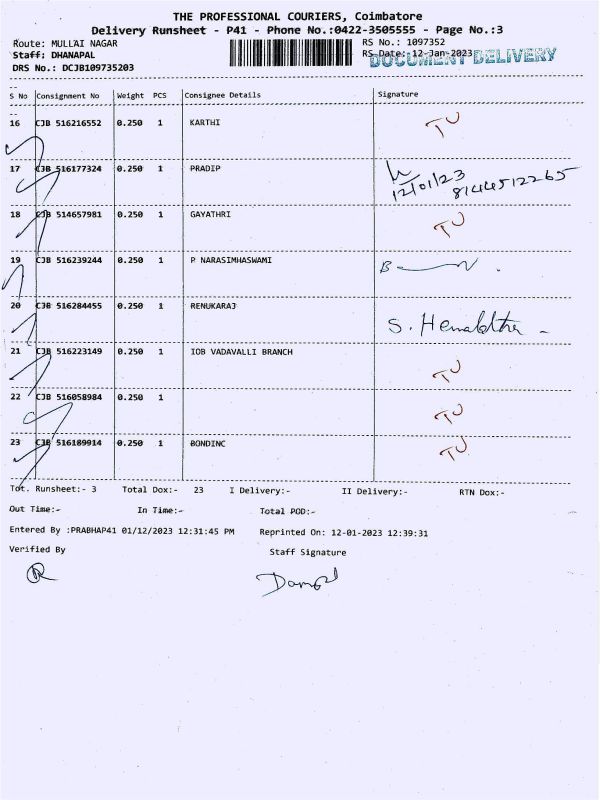 THE PROFESSIONAL COURIERS, Coimbatore
Delivery Runsheet - P41 - Phone No.:0422-3505555 - Page No.:3
Route: MULLAI NAGAR RS No.: 1097352
Staff: DHANAPAL RS Date:-12-Jan-2023 DOCUMENT DELIVERY
DRS No.: DCJB109735203
S No Consignment No Weight PCS Consignee Details Signature
16 CJB 516216552 0.250 1 KARTHI TU
17 CJB 516177324 0.250 1 PRADIP 12/01/23
8144512265
18 CJB 514657981 0.250 1 GAYATHRI TU
19 CJB 516239244 0.250 1 P NARASIMHASWAMI
20 CJB 516284455 0.250 1 RENUKARAJ S. Hemalatha
21 CJB 516223149 0.250 1 IOB VADAVALLI BRANCH TU
22 CJB 516058984 0.250 1 TU
23 CJB 516189914 0.250 1 BONDINC TU
Tot. Runsheet:- 3 Total Dox:- 23 I Delivery:- II Delivery:- RTN Dox:-
Out Time:- In Time:- Total POD:-
Entered By :PRABHAP41 01/12/2023 12:31:45 PM Reprinted On: 12-01-2023 12:39:31
Verified By Staff Signature